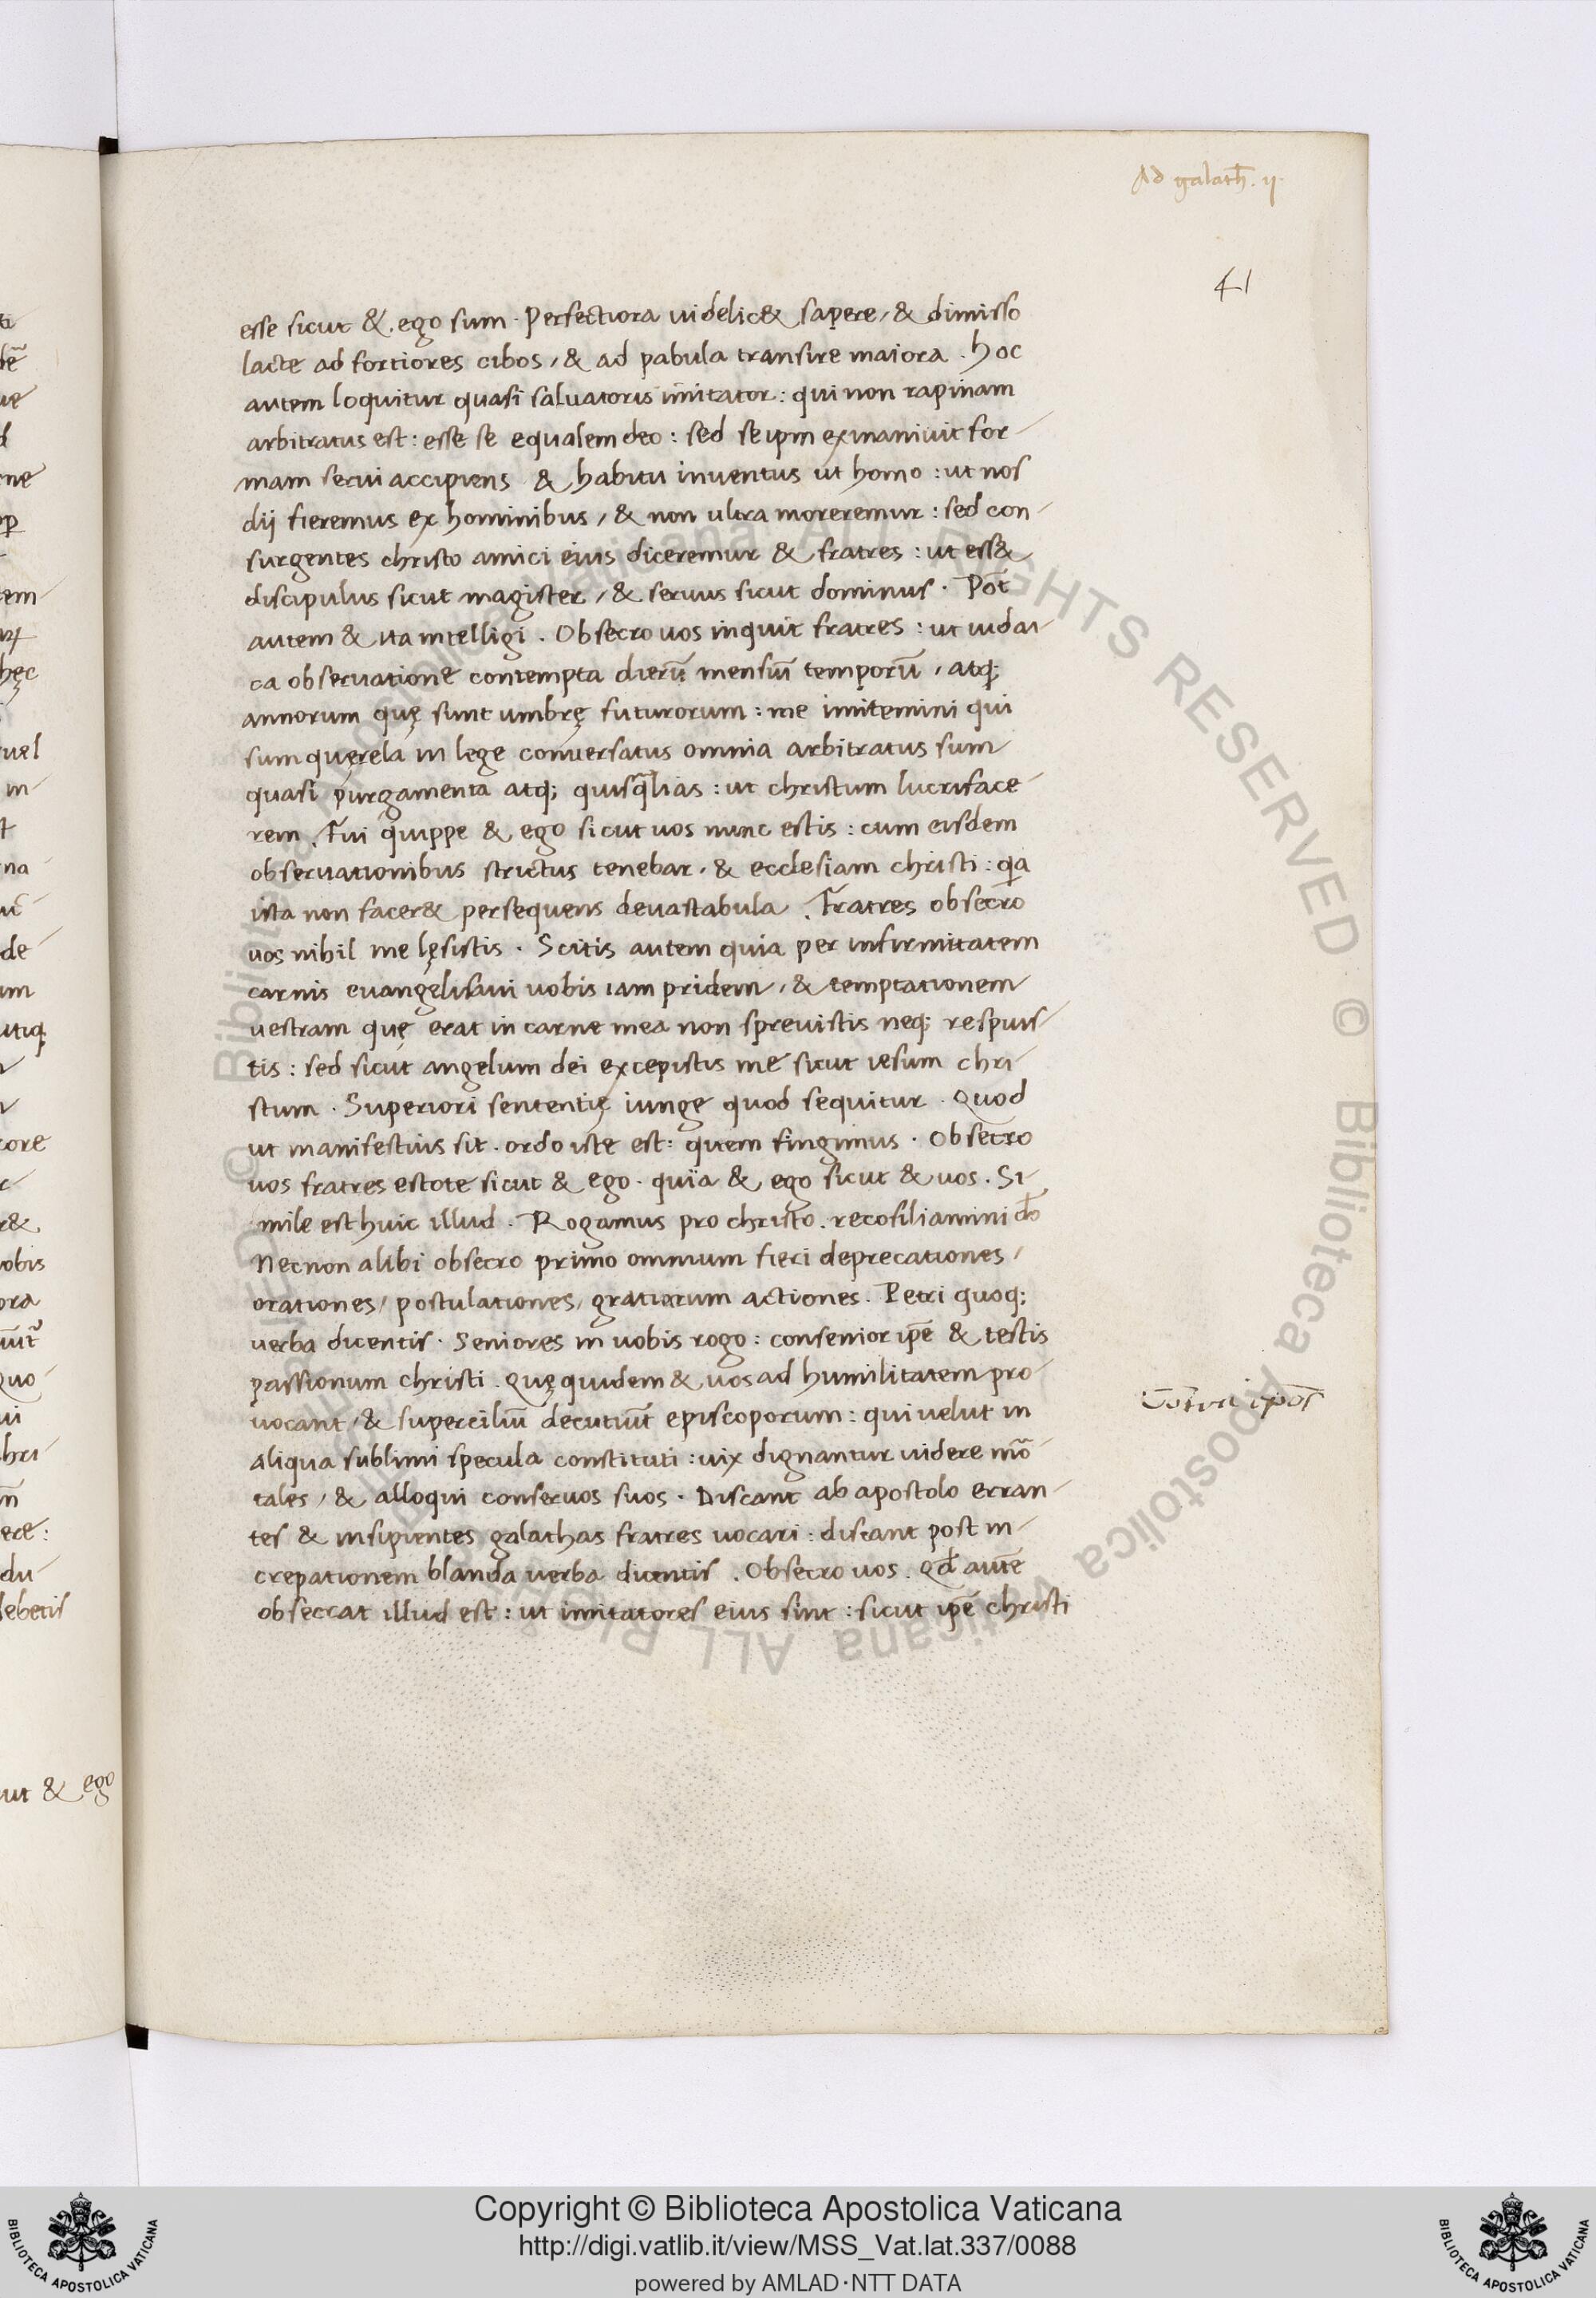 Ad galath̄. ij.
41
esse sicut &. ego sum. Perfectiora uidelic& sapere, & dimisso
lacte ad fortiores cibos, & ad pabula transire maiora. Hoc
autem loquitur quasi saluatoris imitator: qui non rapinam
arbitratus est: esse se equalem deo: sed seipm̄ exinaniuit for-
mam serui accipiens & habitu inuentus ut homo: ut nos
dij fieremus ex hominibus, & non ultra moreremur: sed con-
surgentes christo amici eius diceremur & fratres: ut ess&
discipulus sicut magister, & seruus sicut dominus. Pōt
autem & ita intelligi. Obsecro uos inquit fratres: ut iudai-
ca obseruatione contempta dierū mensiū temporū, atq;
annorum quę sunt umbrę futurorum: me imitemini qui
sum querela in lege conuersatus omnia arbitratus sum
quasi purgamenta atq; quisq̄lias: ut christum lucriface-
rem. Fui quippe & ego sicut uos nunc estis: cum eisdem
obseruationibus strictus tenebar, & ecclesiam christi: quia
ista non facer& persequens deuastabula. Fratres obsecro
uos nihil me lęsistis. Scitis autem quia per infirmitatem
carnis euangelisaui uobis iam pridem, & temptationem
uestram quę erat in carne mea non spreuistis neq; respuis-
tis: sed sicut angelum dei excepistis me sicut iesum chri-
stum. Superiori sententię iunge quod sequitur. Quod
ut manifestius sit. ordo iste est: quem fingimus. Obsecro
uos fratres estote sicut & ego. quia & ego sicut & uos. Si-
mile est huic illud. Rogamus pro christo. recōsiliamini dō
Necnon alibi obsecro primo omnium fieri deprecationes,
orationes, postulationes, gratiarum actiones. Petri quoq;
uerba dicentis. Seniores in uobis rogo: consenior ip̄e & testis
passionum christi. Quę quidem & uos ad humilitatem pro-
uocant, & superciliū decutiūt episcoporum: qui uelut in
aliqua sublimi specula constituti: uix dignantur uidere mō-
tales, & alloqui conseruos suos. Discant ab apostolo erran-
tes & insipientes galathas fratres uocari: discant post in-
crepationem blanda uerba dicentis. Obsecro uos. Qd̄ autē
obsecrat illud est: ut imitatores eius sint: sicut ip̄e christi
ti
ne
d
hęc
uel
in
na
de
um
utiq;
core
r&
uobis
ora
quo
ui
chri
ere:
du-
debetis
sicut & ego
© Biblioteca Apostolica Vaticana ALL RIGHTS RESERVED © Biblioteca Apostolica Vaticana ALL RIGHTS RESERVED
Copyright © Biblioteca Apostolica Vaticana
http://digi.vatlib.it/view/MSS_Vat.lat.337/0088
powered by AMLAD·NTT DATA
BIBLIOTECA APOSTOLICA VATICANA
BIBLIOTECA APOSTOLICA VATICANA